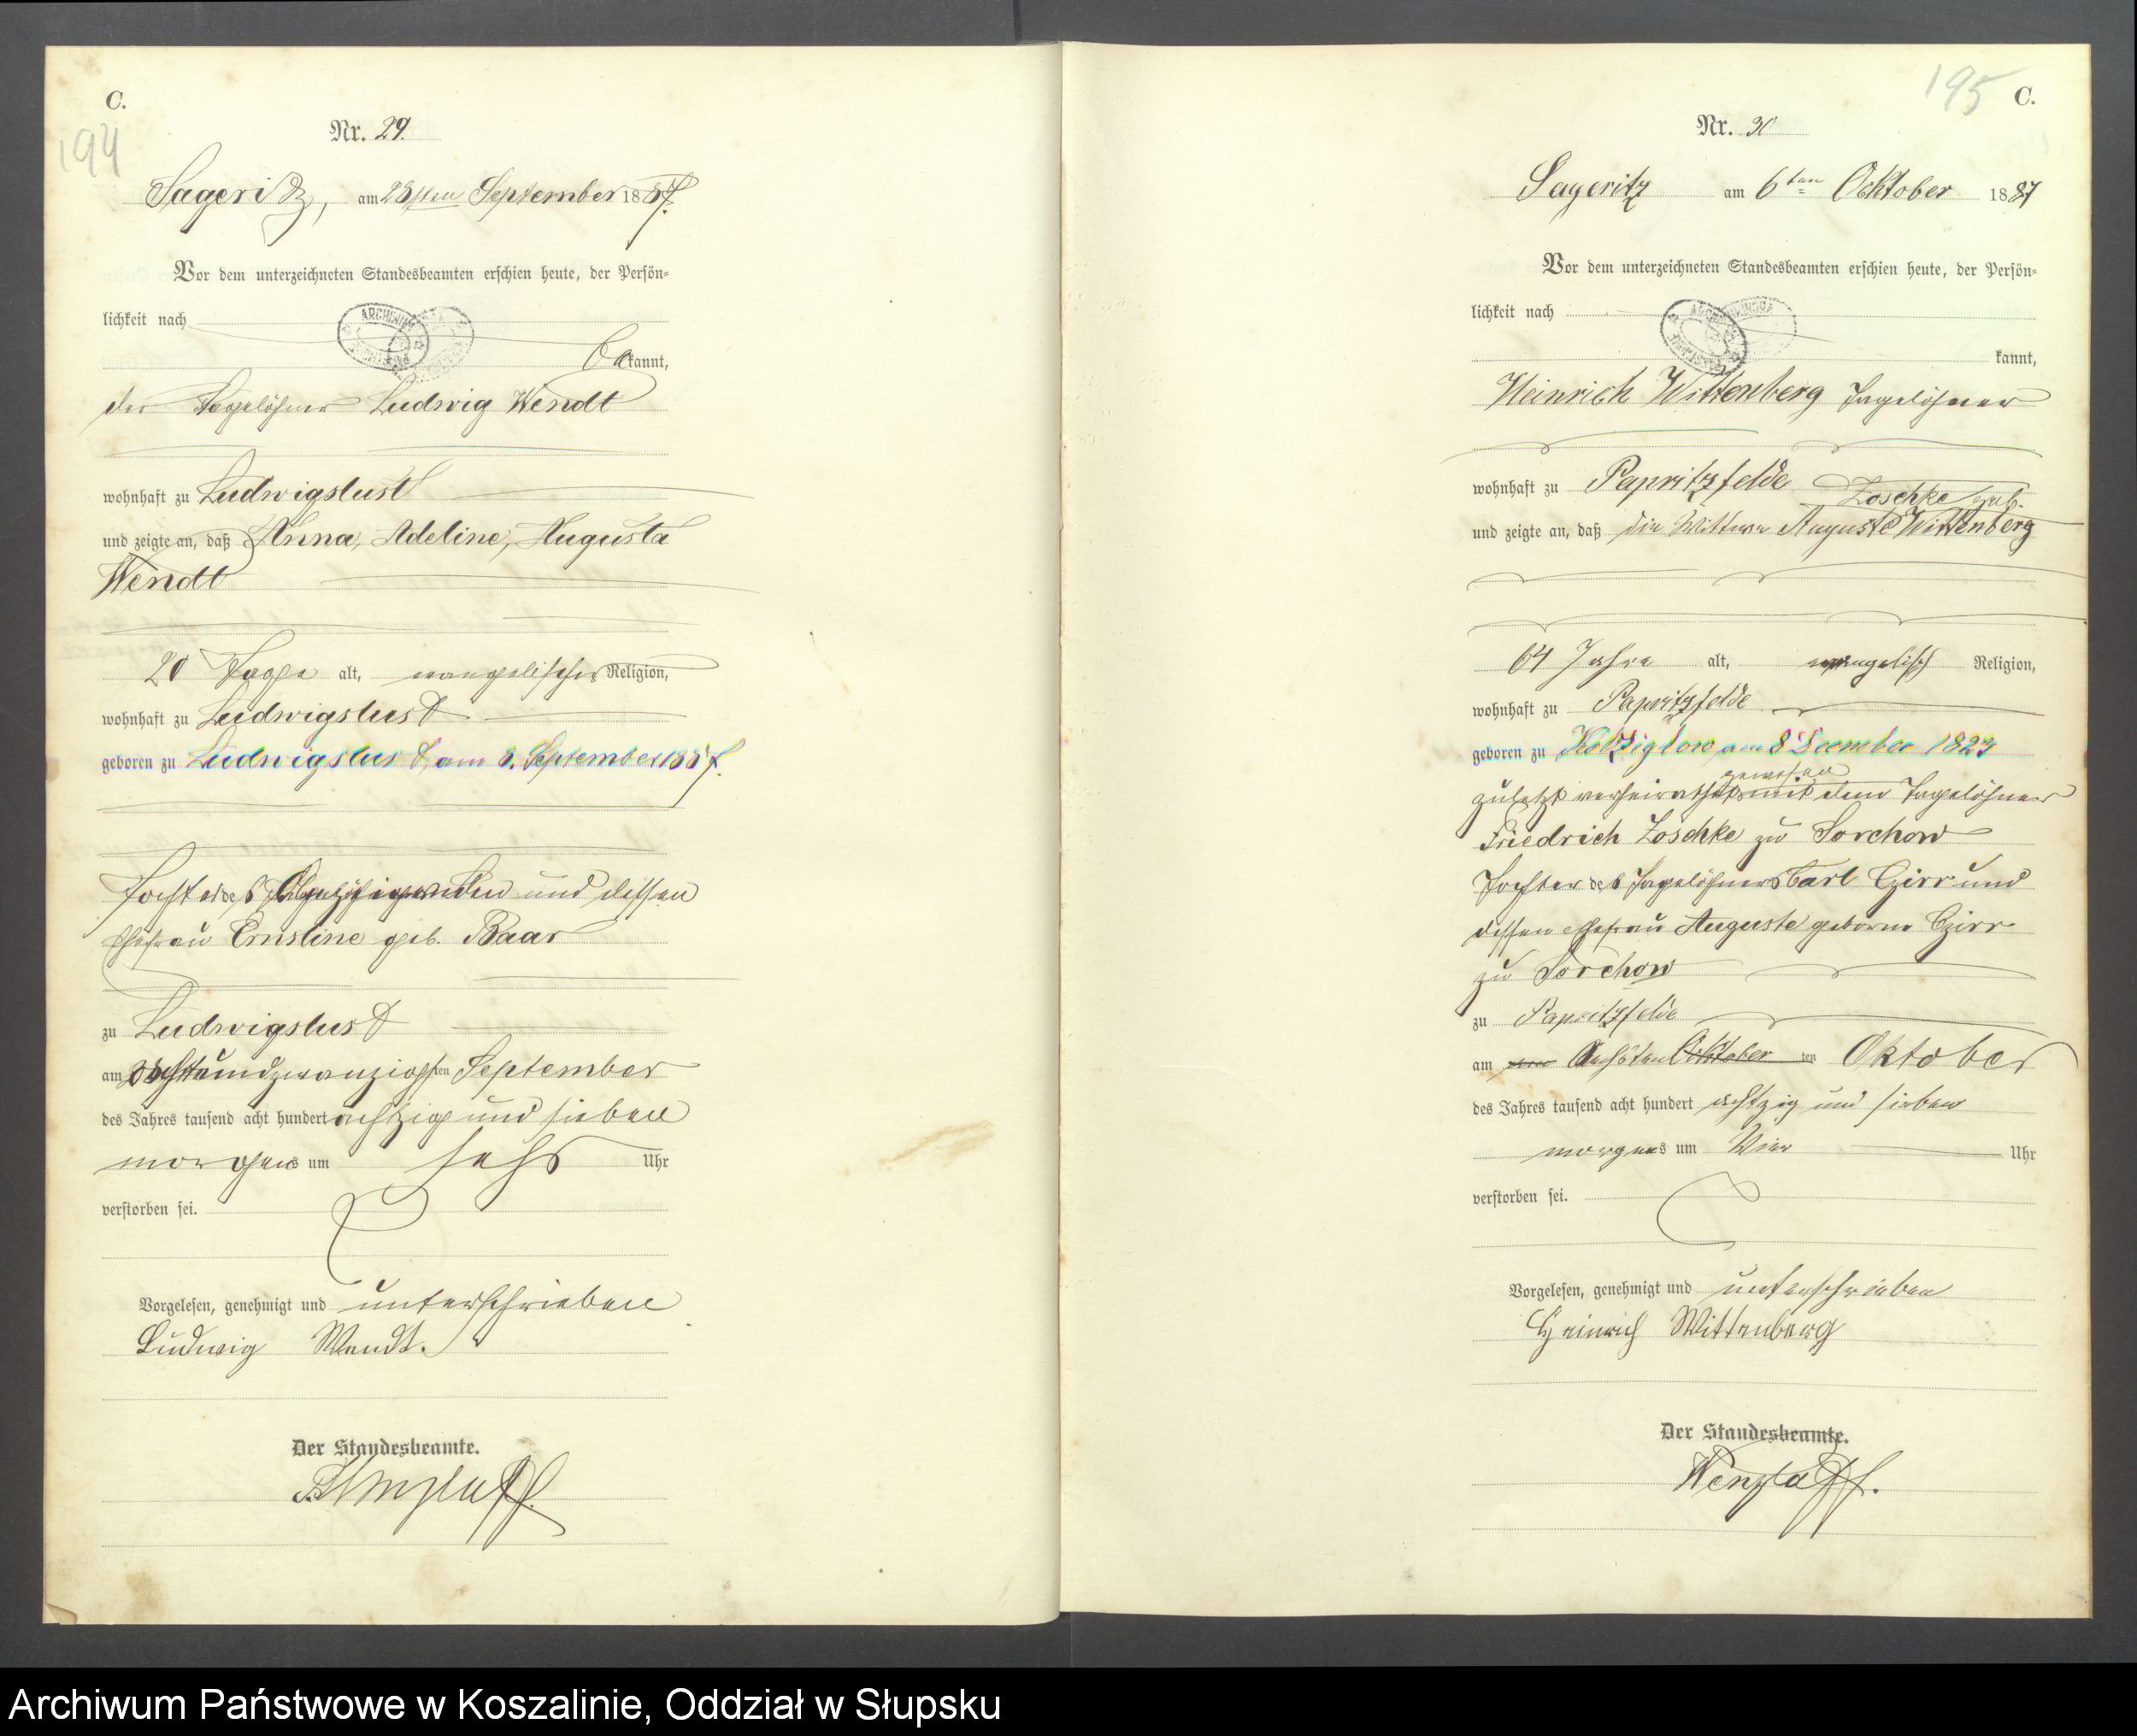 C.
194
Nr. 29.
Sageritz, am 28sten September 1887.
Vor dem unterzeichneten Standesbeamten erschien heute, der Persön-
lichkeit nach
bekannt,
der Tagelöhner Ludwig Wendt
wohnhaft zu Ludwigslust
und zeigte an, daß Anna, Adeline, Augusta
Wendt
20 Tage alt, evangelischer Religion,
wohnhaft zu Ludwigslust
geboren zu Ludwigslust, am 8. September 1887.
Tochter des Anzeigenden und dessen
Ehefrau Ernstine geb. Baar
zu Ludwigslust
am achtundzwanzigsten September
des Jahres tausend acht hundert achtzig und sieben
morgens um sechs Uhr
verstorben sei.
Vorgelesen, genehmigt und unterschrieben
Ludwig Wendt.
Der Standesbeamte.
Wenzlaff.
195
C.
Nr. 30
Sageritz am 6ten Ocktober 1887
Vor dem unterzeichneten Standesbeamten erschien heute, der Persön-
lichkeit nach
kannt,
Heinrich Wittenberg Tagelöhner
wohnhaft zu Papritzfelde
Zoschke geb.
und zeigte an, daß die Wittwe Auguste Wittenberg
64 Jahre alt, evangelisch Religion,
wohnhaft zu Papritzfelde
geboren zu am 8 December 1823
gewesen
zuletzt verheirathet mit dem Tagelöhner
Friedrich Zoschke zu Sorchow
Tochter des Tagelöhners Carl Czirr und
dessen Ehefrau Auguste geborne Czirr
zu Sorchow
zu Papritzfelde
am Ocktober ten Oktober
des Jahres tausend acht hundert achtzig und sieben
morgens um Vier Uhr
verstorben sei.
Vorgelesen, genehmigt und unterschrieben
Heinrich Wittenberg
Der Standesbeamte.
Wenzlaff.
Archiwum Państwowe w Koszalinie, Oddział w Słupsku